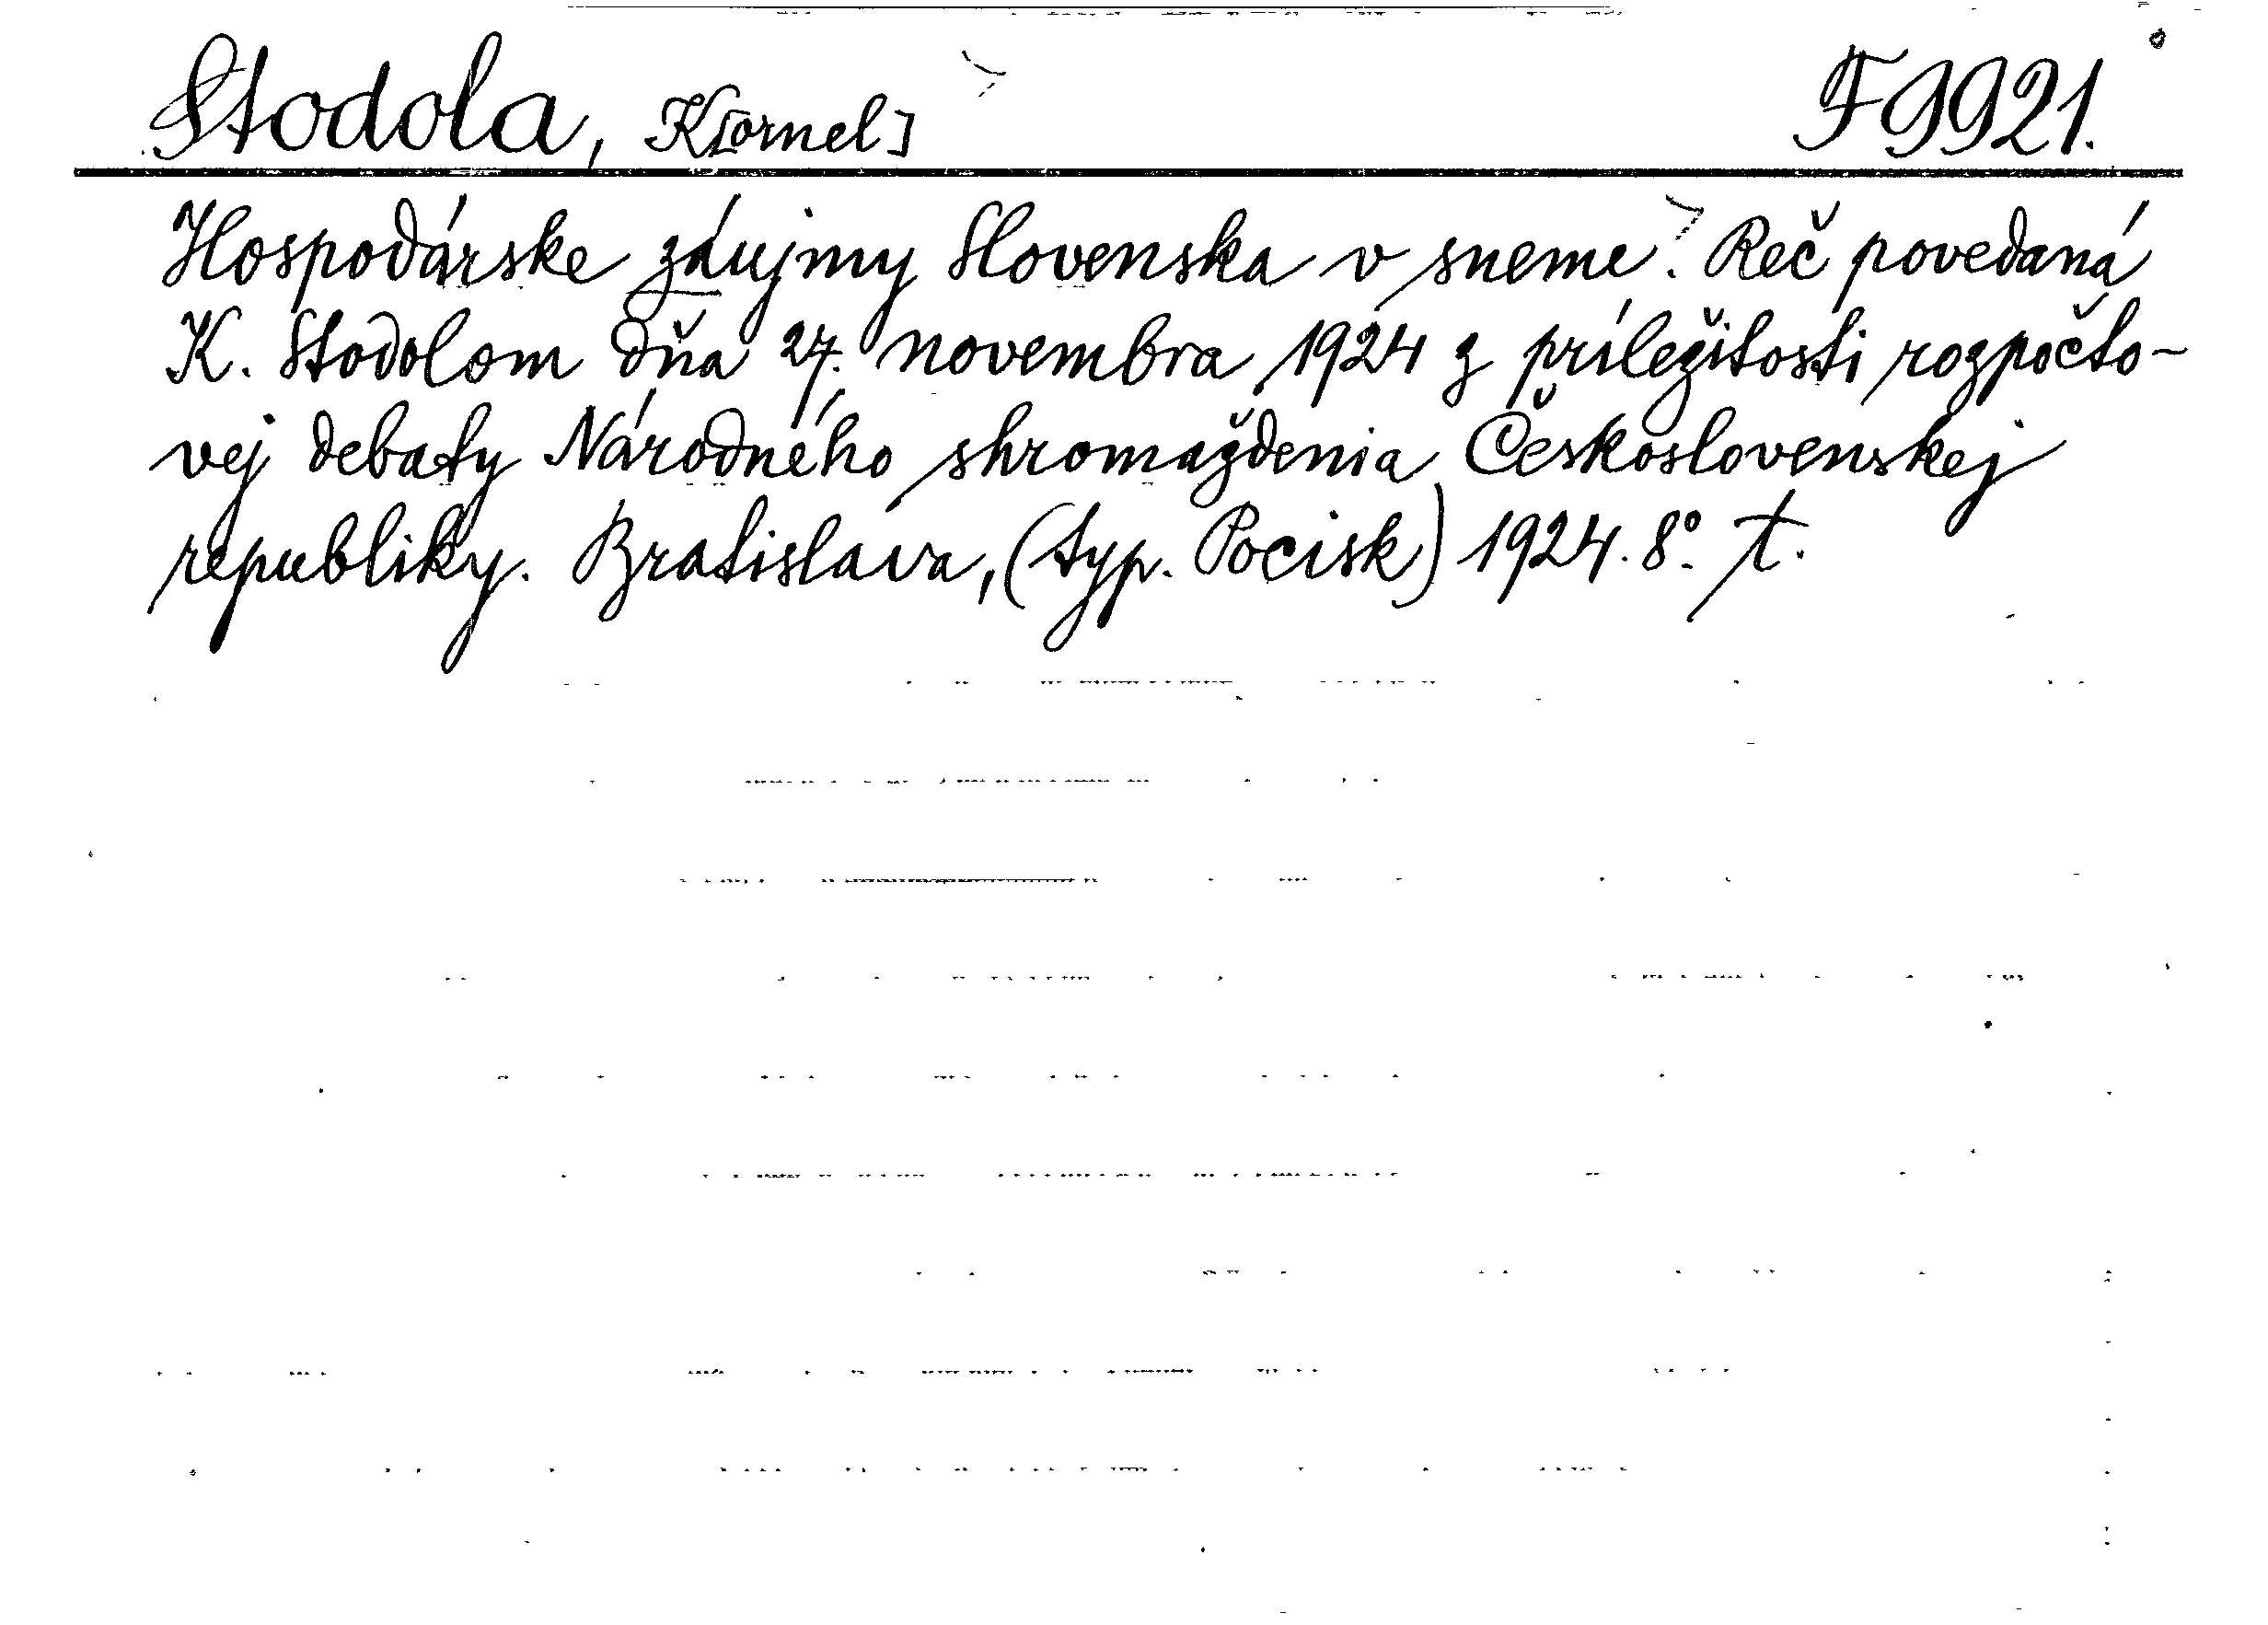 Stodola, K[ornel] F9921.
Hospodárske záujmy Slovenska v sneme. Reč povedaná
K. Stodolom dňa 27. novembra 1924 z príležitosti rozpočto-
vej debaty Národného shromaždenia Československej
republiky. Bratislava, (typ. Pocisk) 1924. 8°. t.